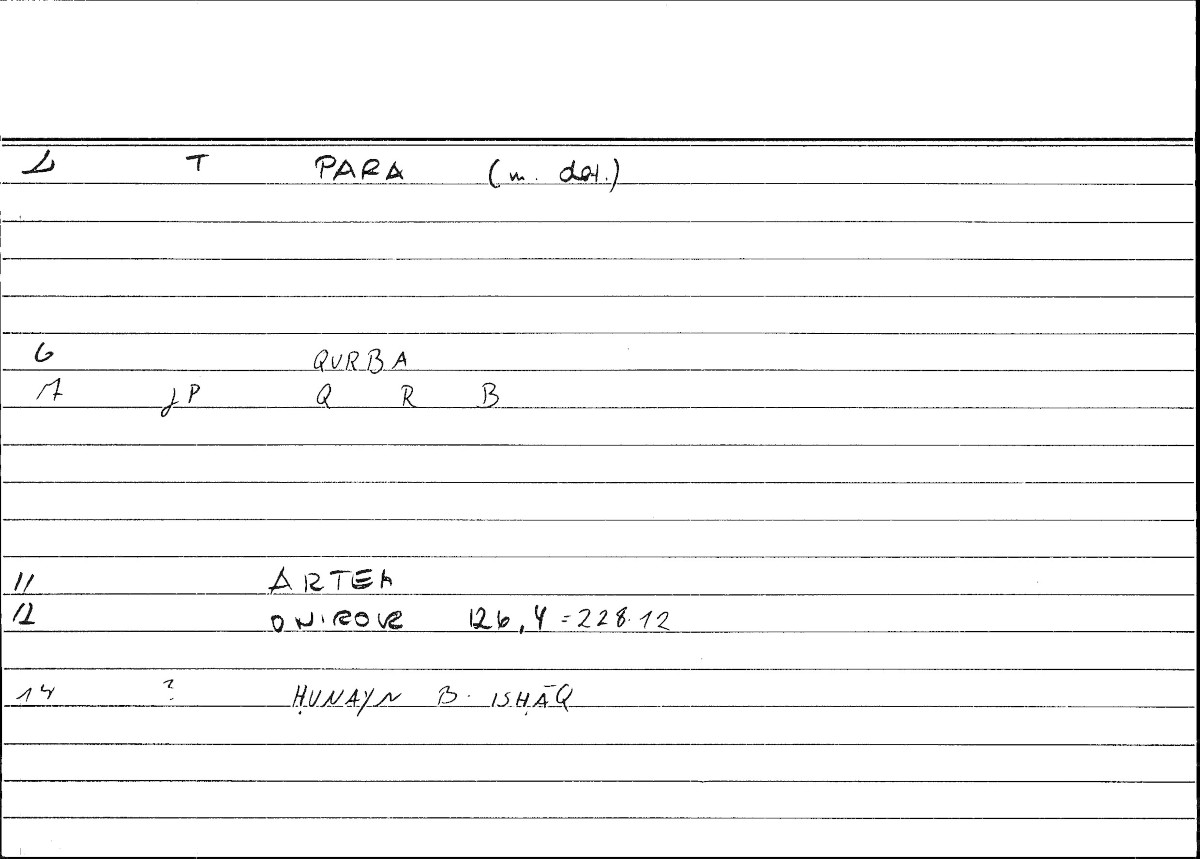 1 T PARA (m. det.)
6 QURBA
7 JP Q R B
11 ARTEM
12 ONIROCR 126,4=228.12
14 ? ḤUNAYN B. ISḤĀQ